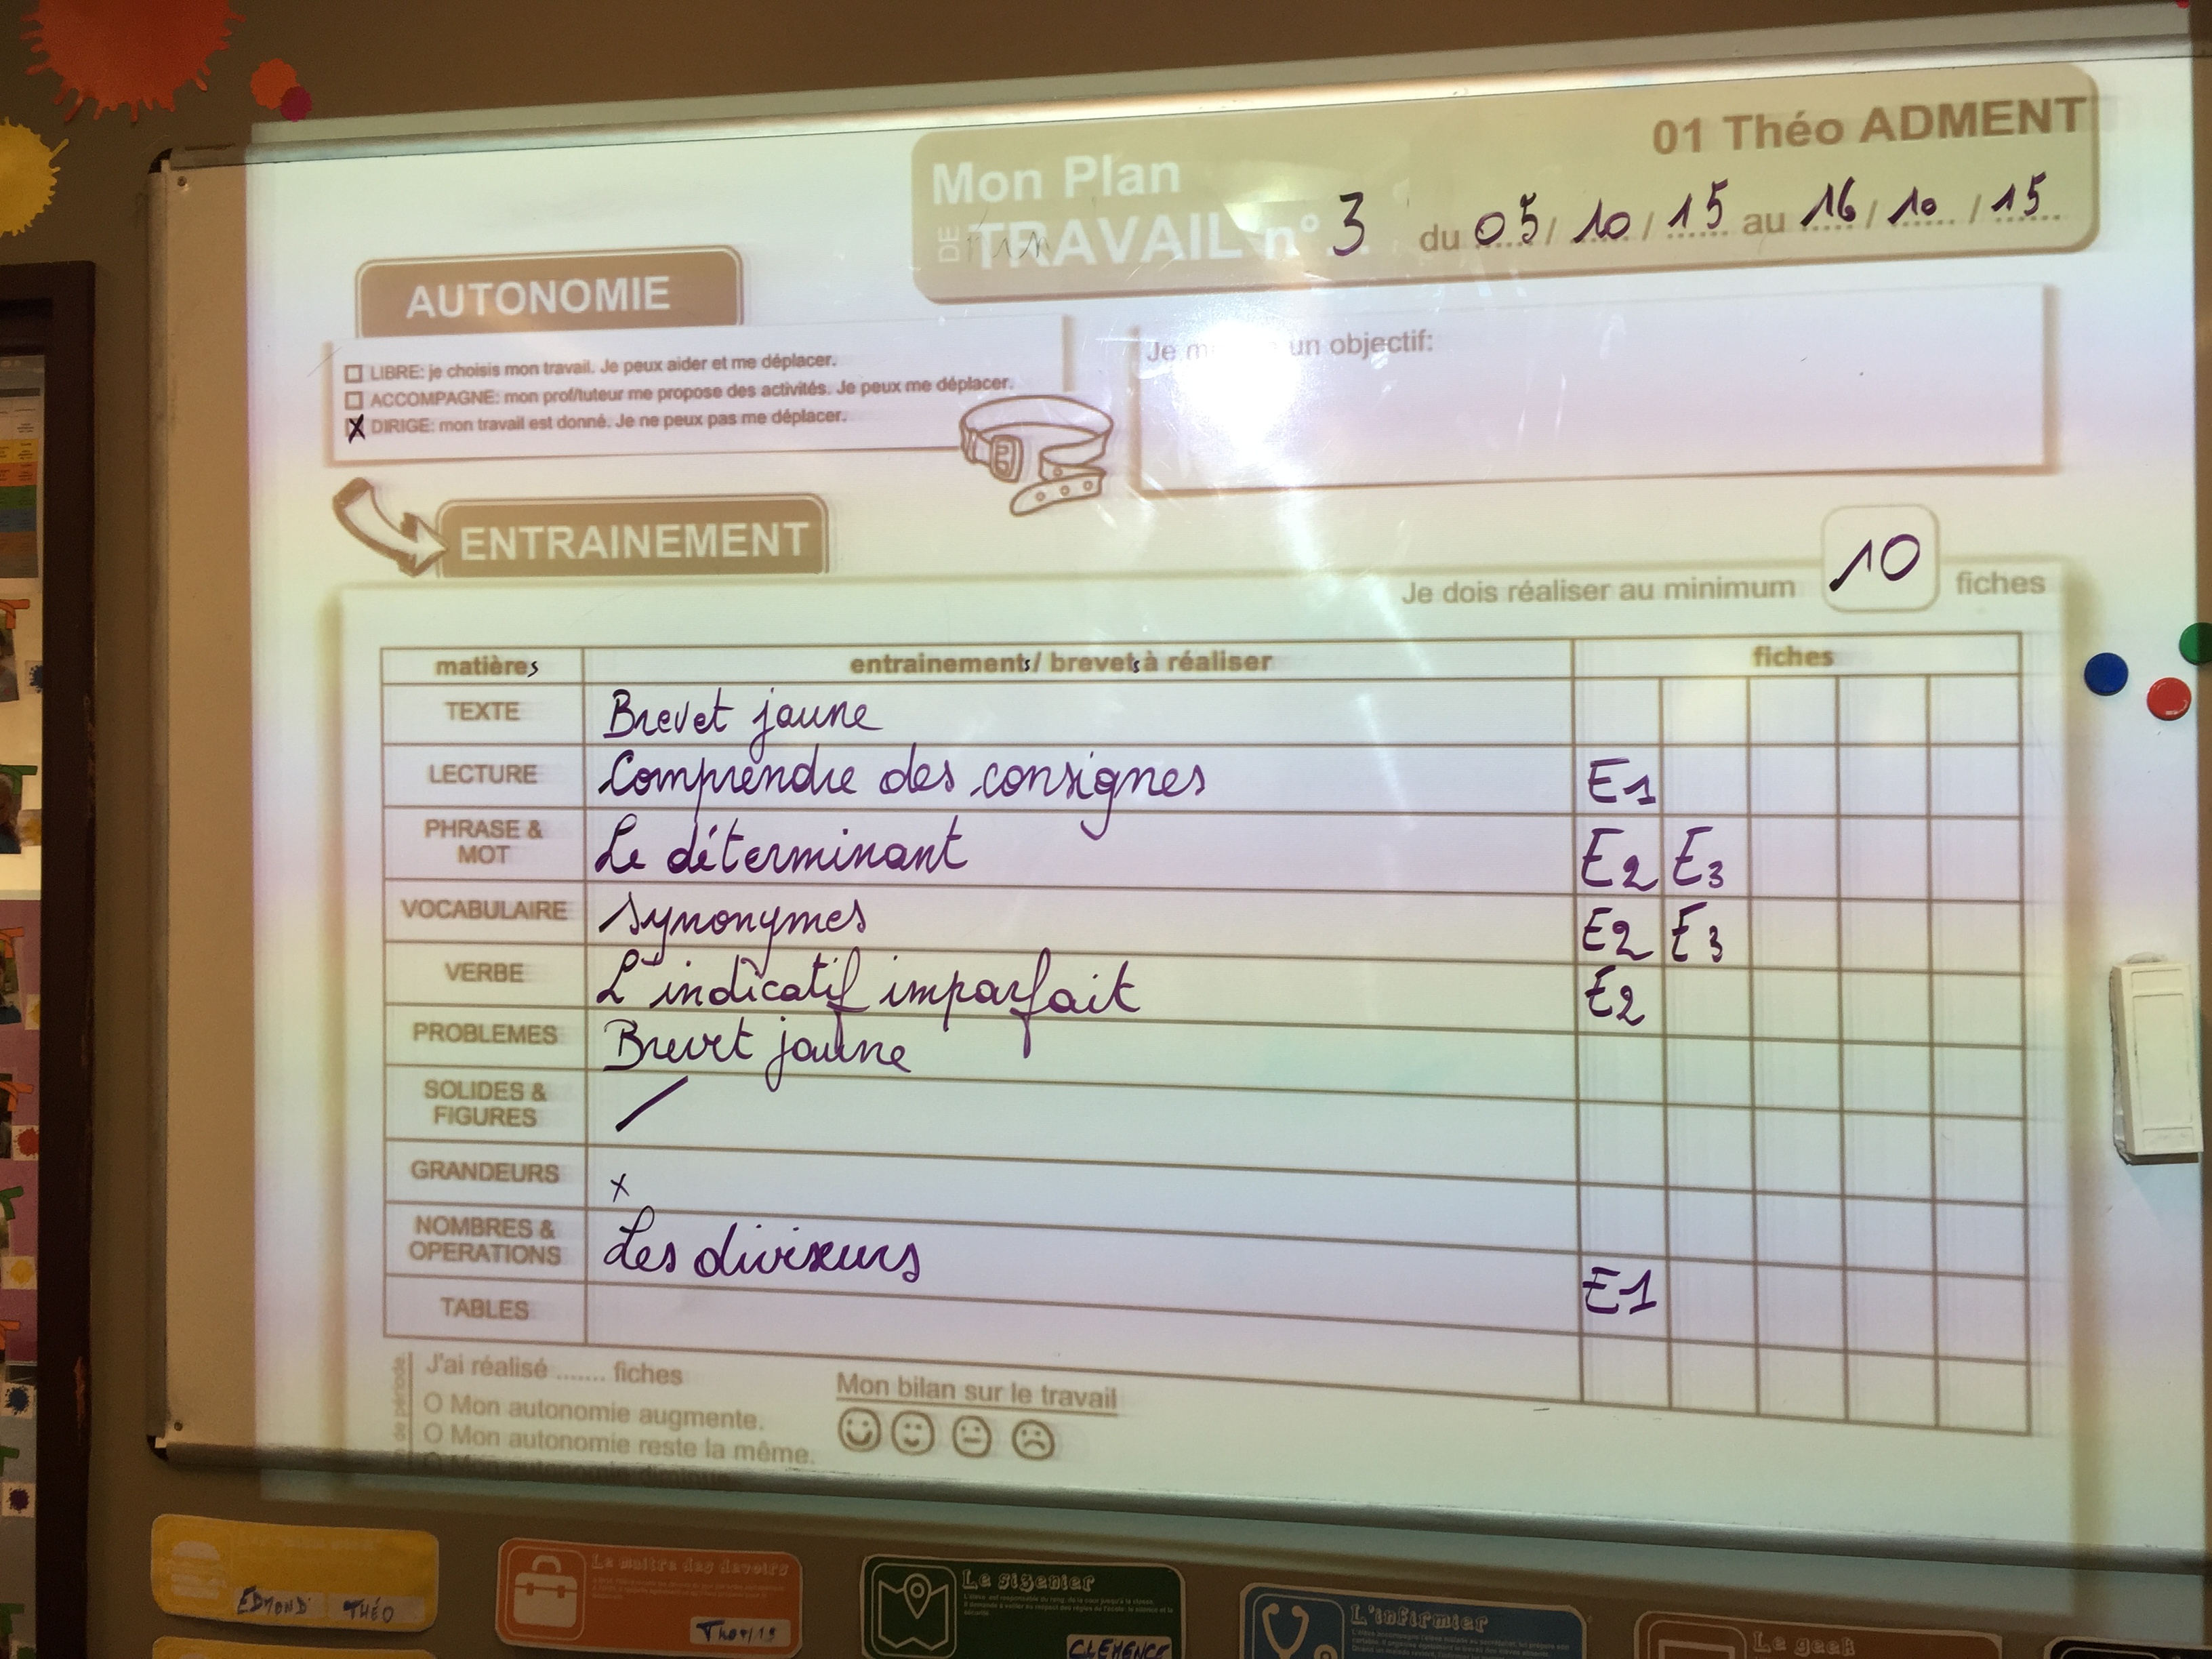 01 Théo ADMENT
Mon Plan
DE TRAVAIL n° 3 du 05/10/15 au 16/10/15
AUTONOMIE
LIBRE: je choisis mon travail. Je peux aider et me déplacer.
ACCOMPAGNE: mon prof/tuteur me propose des activités. Je peux me déplacer.
X DIRIGE: mon travail est donné. Je ne peux pas me déplacer.
Je un objectif:
ENTRAINEMENT
Je dois réaliser au minimum 10 fiches
matières entrainements/ brevets à réaliser fiches
TEXTE Brevet jaune
LECTURE Comprendre des consignes E1
PHRASE & MOT Le déterminant E2 E3
VOCABULAIRE synonymes E2 E3
VERBE L'indicatif imparfait E2
PROBLEMES Brevet jaune
SOLIDES & FIGURES /
GRANDEURS x
NOMBRES & OPERATIONS Les diviseurs E1
TABLES
J'ai réalisé ....... fiches
O Mon autonomie augmente.
O Mon autonomie reste la même.
Mon bilan sur le travail
EDMOND THÉO
Le maître des devoirs
Le sizenier
CLEMENCE
L'infirmier
Le geek